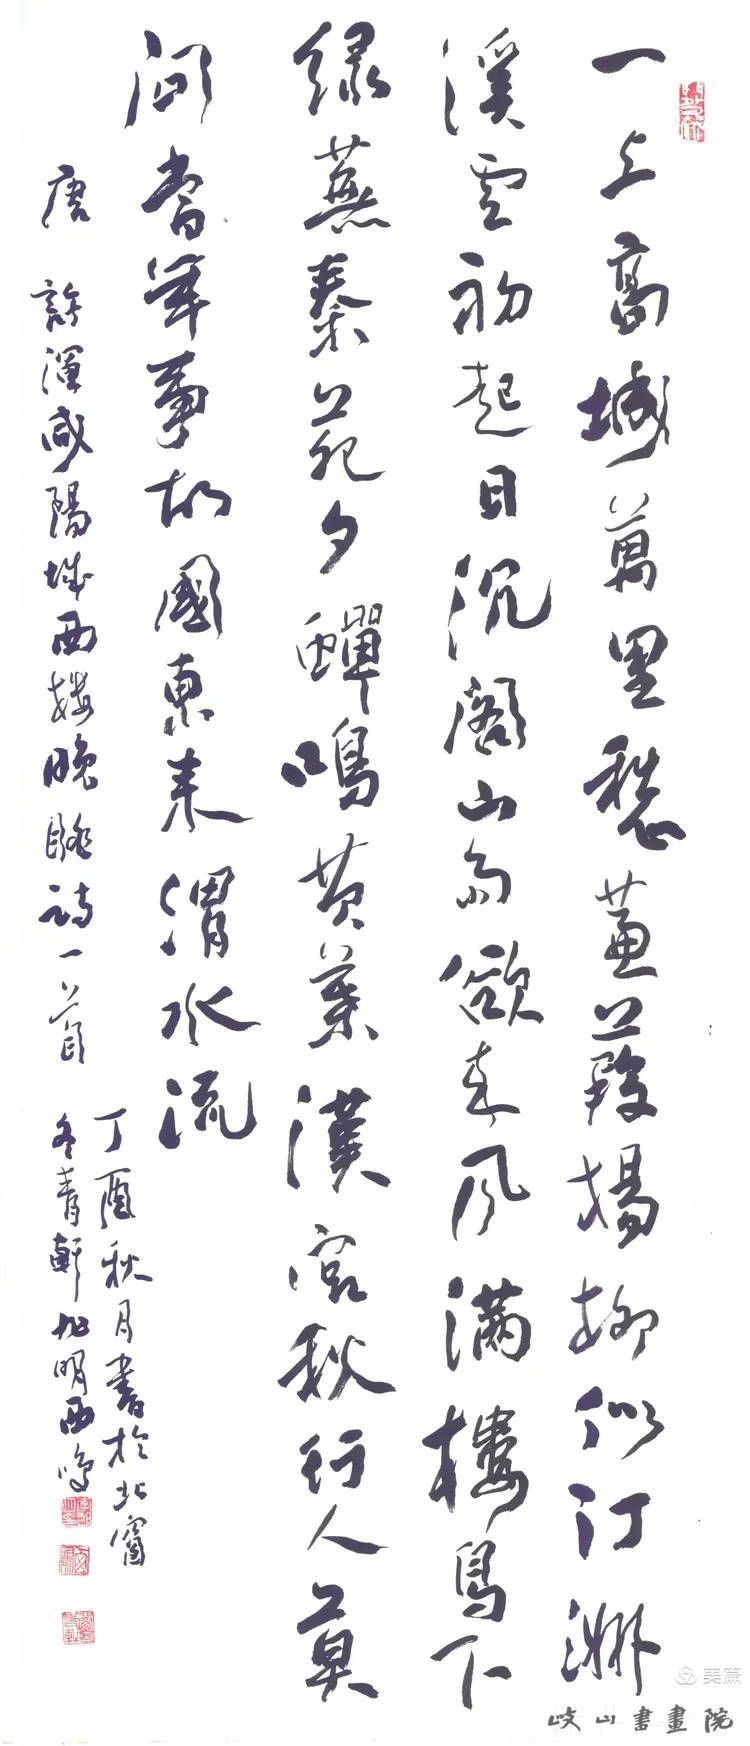 一上高城萬里愁蒹葭楊柳似汀洲
溪雲初起日沉閣山雨欲来風满樓鳥下
绿蕪秦苑夕蟬鳴黄葉漢宫秋行人莫
问當年事故國東来渭水流
唐 許渾咸陽城西樓晚眺詩一首
丁酉秋月書於北窗
冬青軒 明西
美篇
岐山書畫院